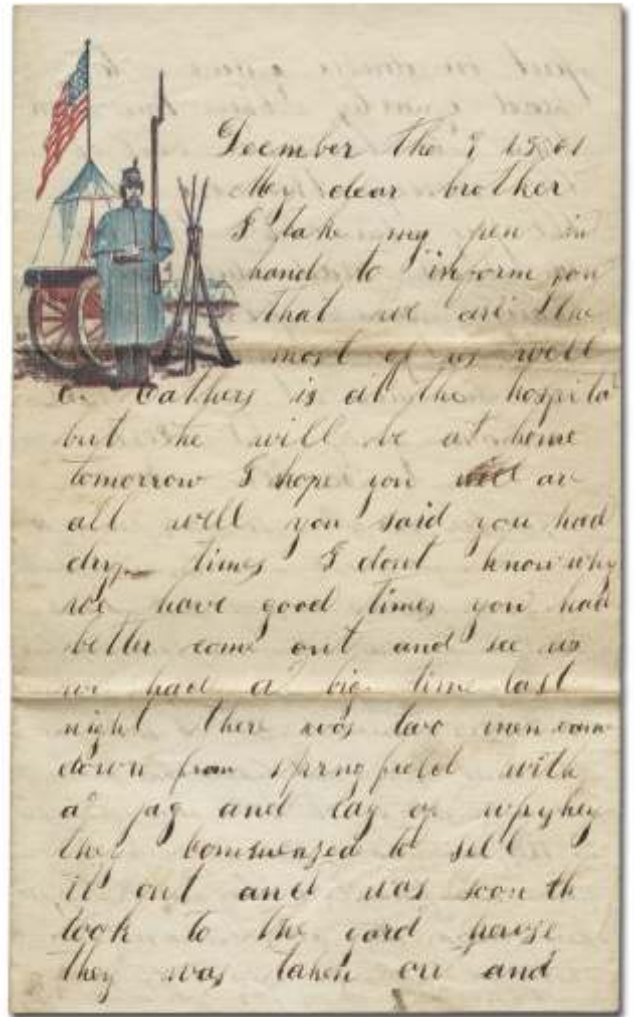 December the 9 1861
My dear brother
I take my pen in
hand to inform you
that we are the
most of us well
Cathers is at the hospital
but he will be at home
tomorrow I hope you are
all well you said you had
dry times I dont know why
we have good times you had
better come out and see us
we had a big time last
night there was two men came
down from springfield with
a jag and cag of whyskey
they to sell
it out and was soon
took to the gard house
they was taken and